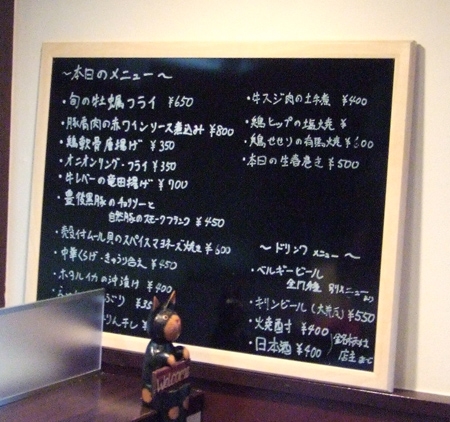 〜本日のメニュー〜
・旬の牡蠣フライ ¥650
・豚肩肉の赤ワインソース煮込み ¥800
・鶏軟骨唐揚げ ¥350
・オニオンリング・フライ ¥350
・牛レバーの竜田揚げ ¥700
・豊後黒豚のチョリソーと
自然豚のスモークフランク ¥450
・殻付ムール貝のスパイスマヨネーズ焼き ¥600
・中華くらげ・きゅうり合え ¥450
・ホタルイカの沖漬け ¥400
¥35
りんご
・牛スジ肉の土手煮 ¥400
・鶏ヒップの塩焼 ¥
・鶏セセリの 焼 ¥600
・本日の生春巻き ¥500
〜ドリンクメニュー〜
・ベルギービール
全 種 別メニュー
より
・キリンビール(大瓶) ¥550
・火焼酎 ¥400
・日本酒 ¥400
銘柄は
店主まで
Welcome